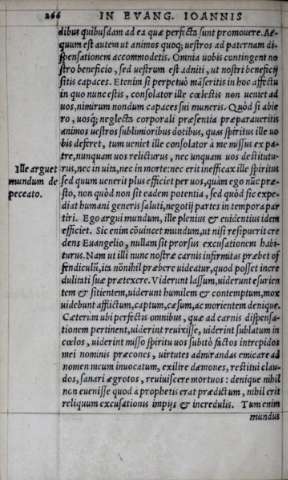 266 IN EVANG. IOANNIS
dibus quibusdam ad ea quæ perfecta sunt promovere. Ae-
quum est autem ut animos quoq; vestros ad paternam di-
spensationem accommodetis. Omnia vobis contingent no
stro beneficio, sed vestrum est adniti, ut nostri beneficij
sitis capaces. Etenim si perpetuò mãseritis in hoc affectu
in quo nunc estis, consolator ille cœlestis non veniet ad
vos, nimirum nondum capaces sui muneris. Quòd si abie
ro, vosq; neglecta corporali præsentia præparaveritis
animos vestros sublimioribus dotibus, quas spiritus ille vo
bis deferet, tum veniet ille consolator à me missus ex pa-
tre, nunquam vos relicturus, nec unquam vos destitutu-
Ille arguet rus, nec in vita, nec in morte: nec erit inefficax ille spiritus
mundum de sed quum venerit plus efficiet per vos, quàm ego nũc præ-
peccato. sto, non quòd non sit eadem potentia, sed quòd sic expe-
diat humani generis saluti, negotij partes in tempora par
tiri. Ego argui mundum, ille plenius & evidentius idem
efficiet. Sic enim cõvincet mundum, ut nisi resipuerit cre
dens Evangelio, nullam sit prorsus excusationem habi-
turus. Nam ut illi nunc nostræ carnis infirmitas præbet of
fendiculũ, ita nõnihil præbere videatur, quod possit incre
dulitati suæ prætexere. Viderunt lassum, viderunt esurien
tem & sitientem, viderunt humilem & contemptum, mox
videbunt afflictum, captum, cæsum, ac morientem denique.
Cæterùm ubi perfectis omnibus, quæ ad carnis dispensa-
tionem pertinent, viderint revixisse, viderint sublatum in
cœlos, viderint misso spiritu vos subitò factos intrepidos
mei nominis præcones, virtutes admirandas emicare ad
nomen meum invocatum, exilire dæmones, restitui clau-
dos, sanari ægrotos, reviviscere mortuos: denique nihil
non evenisse quod à prophetis erat prædictum, nihil erit
reliquum excusationis impijs & incredulis. Tum enim
mundus